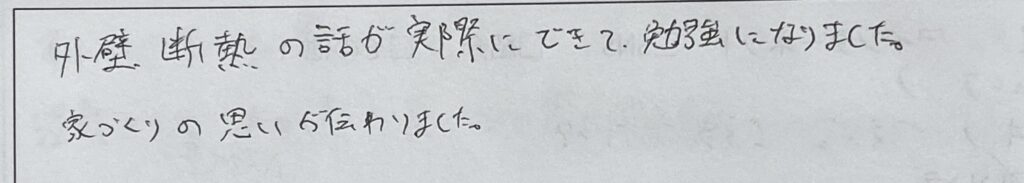 外壁、断熱の話が実際にできて、勉強になりました。
家づくりの思いが伝わりました。